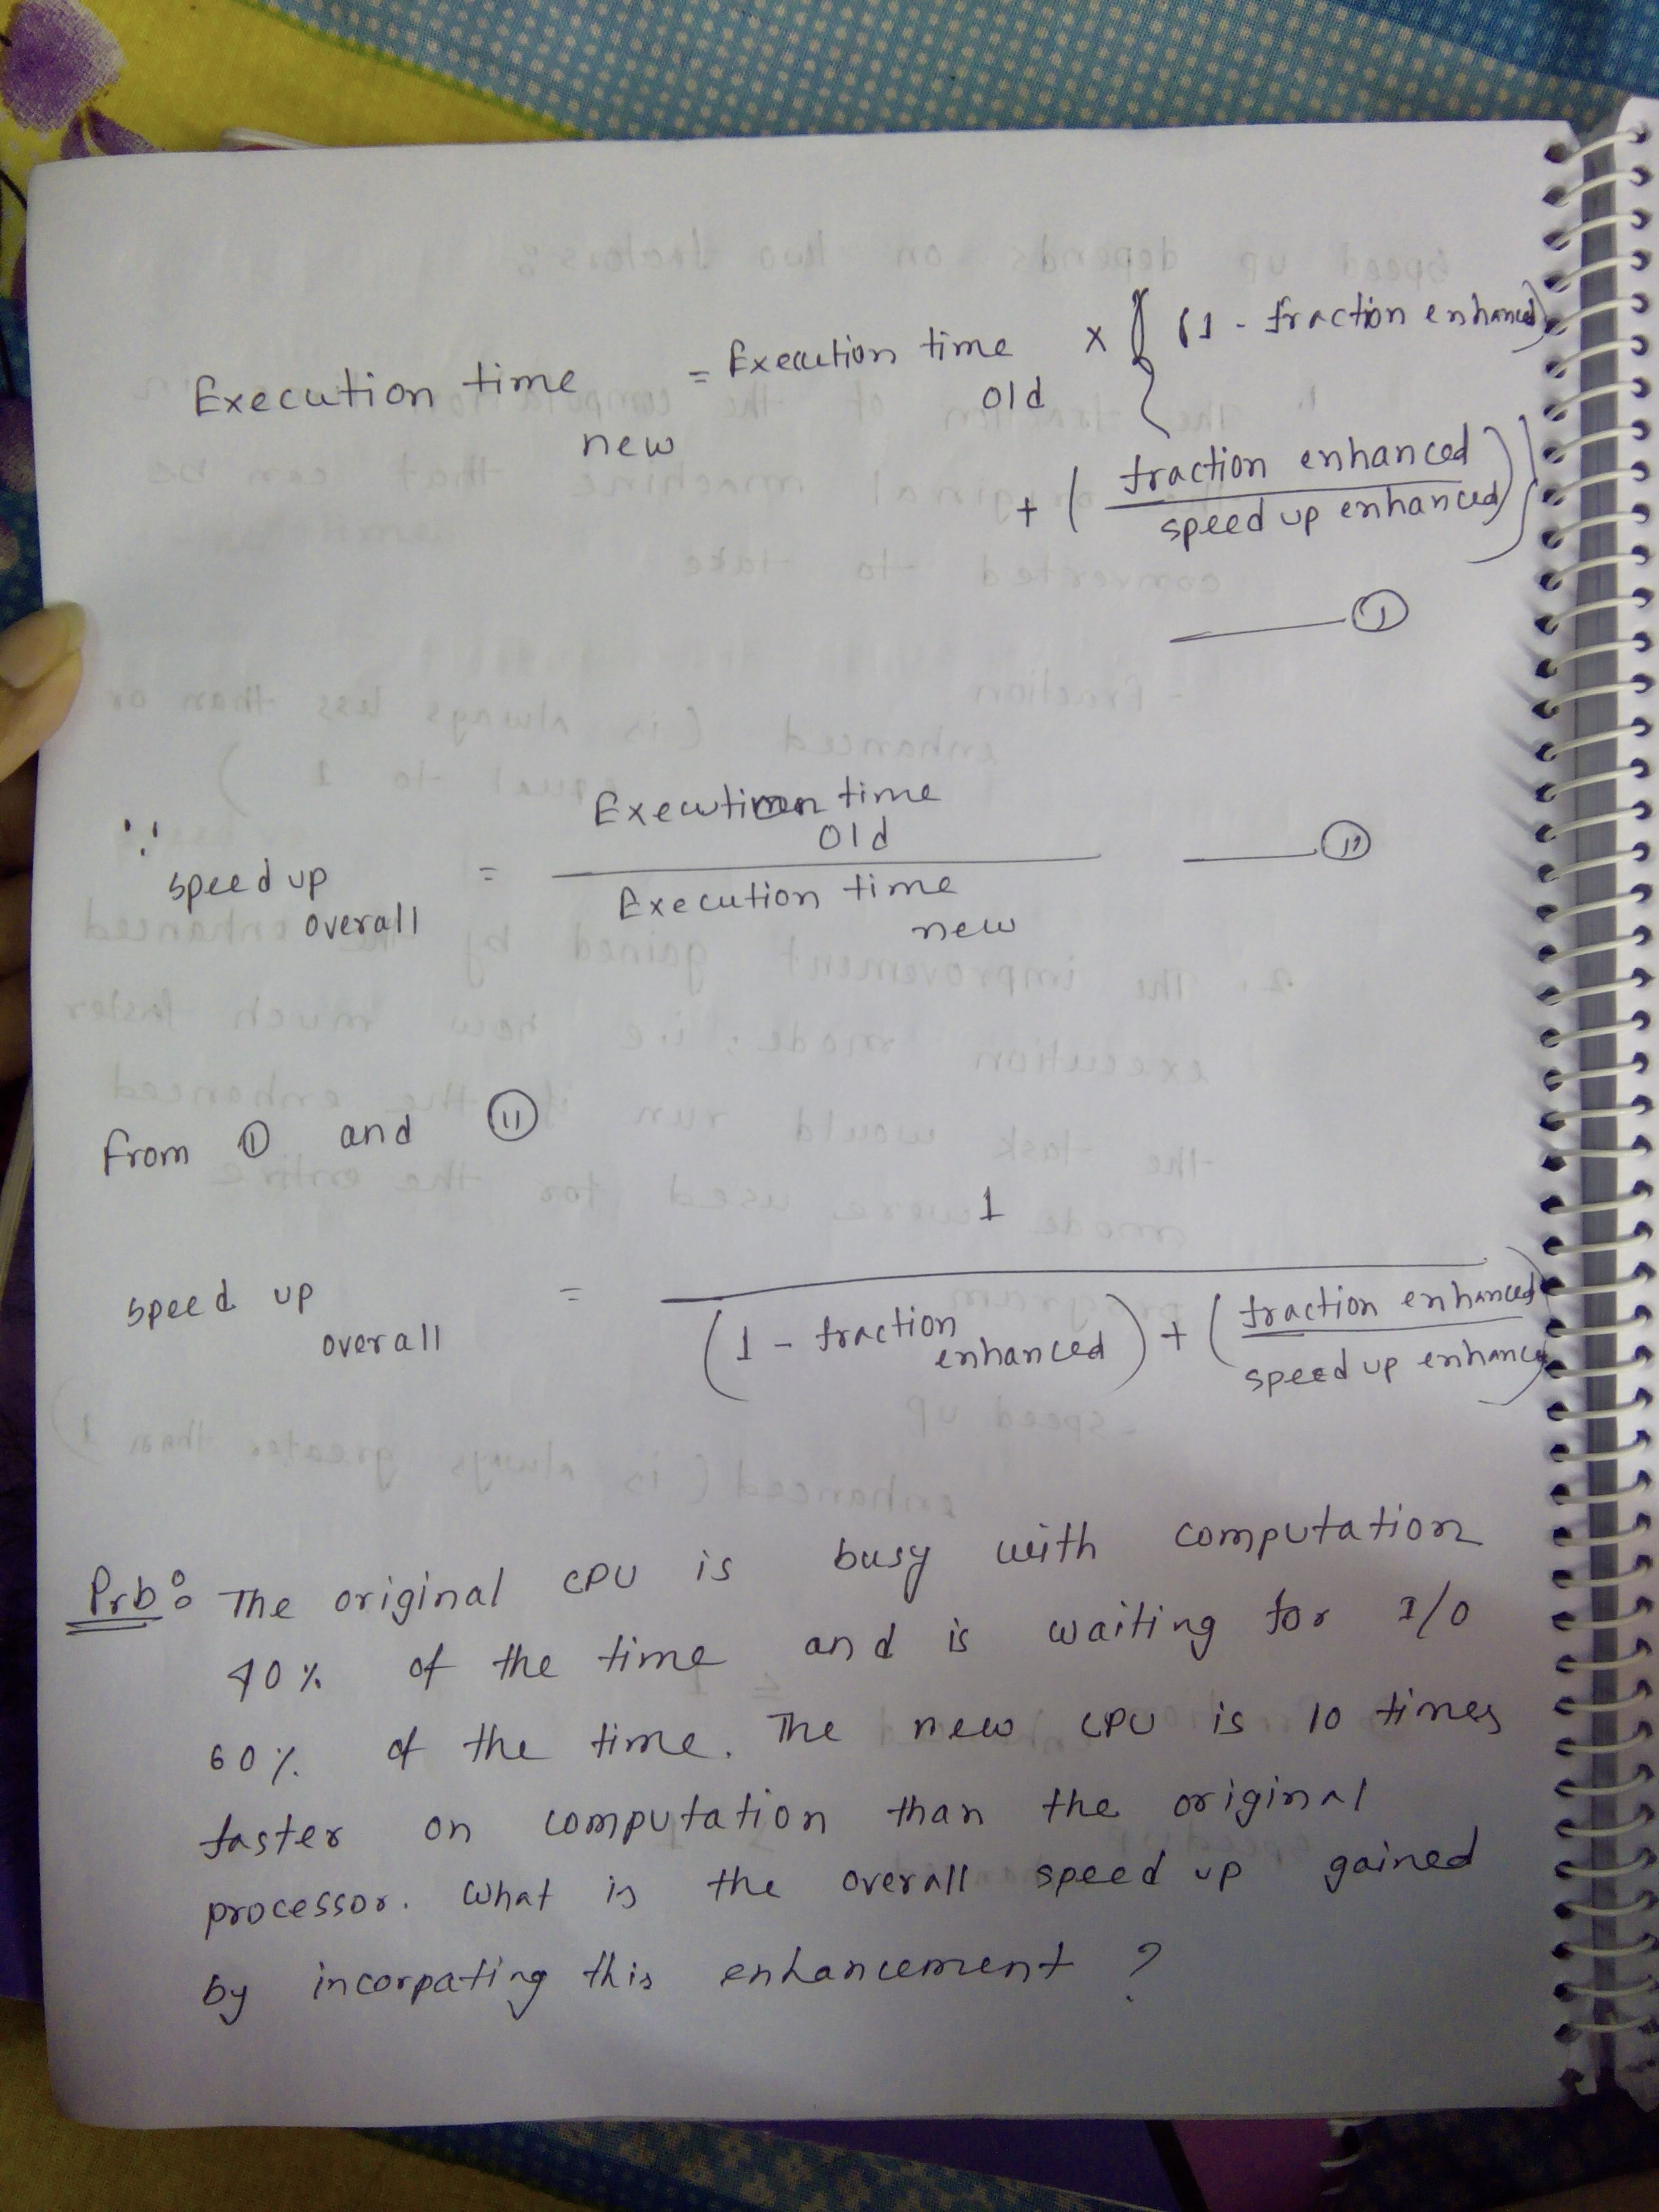 Execution time new = Execution time old x { (1 - fraction enhanced)
+ ( fraction enhanced / speed up enhanced ) }
—— ①
∵ speed up overall = Execution time old / Execution time new —— ⑪
From ① and ⑪
speed up overall = 1 / (1 - fraction enhanced) + ( fraction enhanced / speed up enhanced )
Prb: The original CPU is busy with computation
40% of the time and is waiting for I/O
60% of the time. The new CPU is 10 times
faster on computation than the original
processor. What is the overall speed up gained
by incorpating this enhancement ?